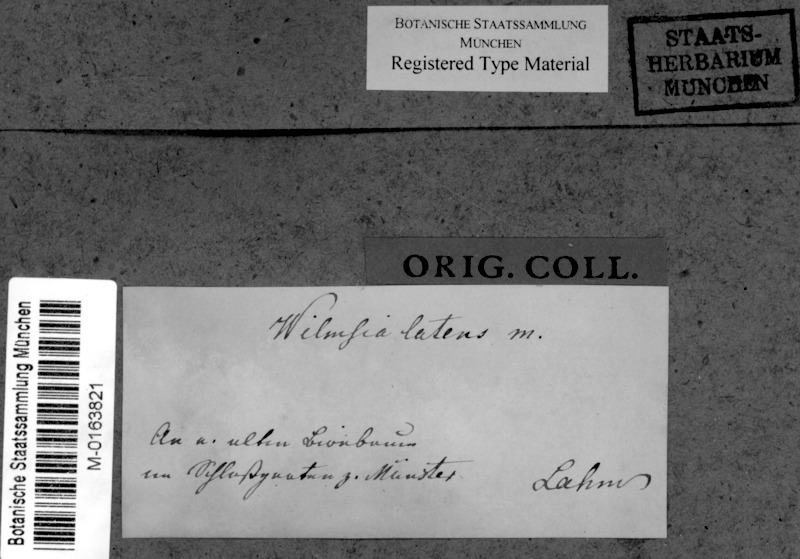 BOTANISCHE STAATSSAMMLUNG
MÜNCHEN
Registered Type Material
STAATS-
HERBARIUM
MÜNCHEN
ORIG. COLL.
Wilmsia latens m.
An a. alten Birnbaum
im Schloßgarten z. Münster
Lahm
Botanische Staatssammlung München
M-0163821